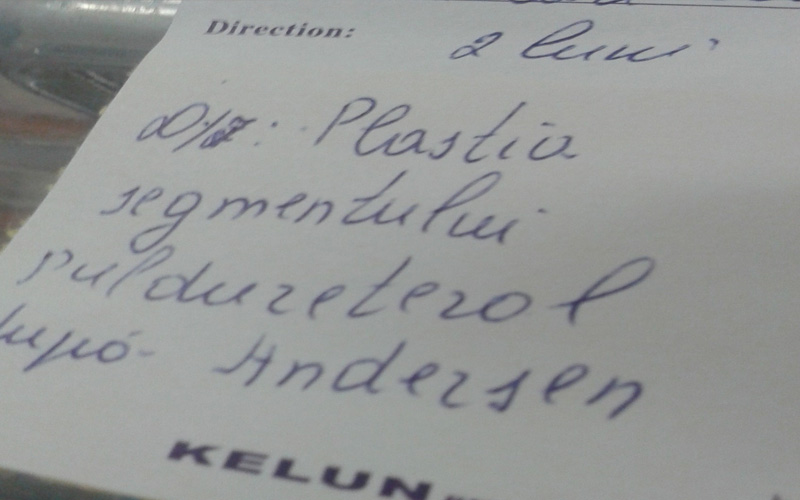 Direction: 2 luni
D/z: Plastia
segmentului
puldureterol
dupó Andersen
KELUN